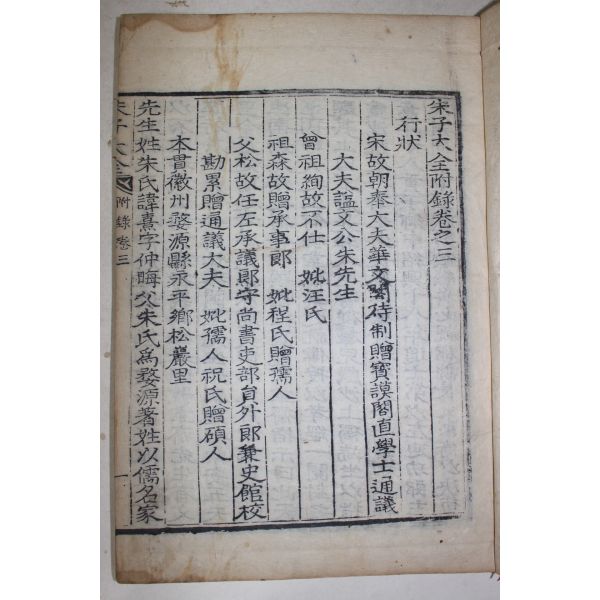 朱子大全附錄卷之三
行狀
宋故朝奉大夫華文閣待制贈寶謨閣直學士通議
大夫諡文公朱先生
曾祖絢故不仕 妣汪氏
祖森故贈承事郎 妣程氏贈孺人
父松故任左承議郞守尚書吏部員外郎兼史館校
勘累贈通議大夫 妣孺人祝氏贈碩人
本貫徽州婺源縣永平鄉松巖里
先生姓朱氏諱熹字仲晦父朱氏爲婺源著姓以儒名家
朱子大全 附錄卷三 一